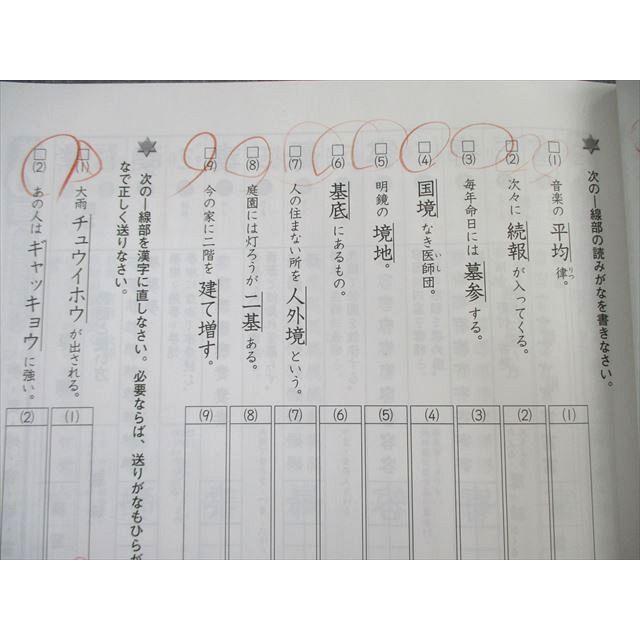 次の―線部の読みがなを書きなさい。
□(1) 音楽の平均律。
りつ
□(2) 次々に続報が入ってくる。
□(3) 毎年命日には墓参する。
□(4) 国境なき医師団。
いし
□(5) 明鏡の境地。
□(6) 基底にあるもの。
□(7) 人の住まない所を人外境という。
□(8) 庭園には灯ろうが二基ある。
□(9) 今の家に二階を建て増す。
(1)
(2)
(3)
(4)
(5)
(6)
(7)
(8)
(9)
次の―線部を漢字に直しなさい。必要ならば、送りがなもひらが
なで正しく送りなさい。
□(1) 大雨チュウイホウが出される。
□(2) あの人はギャッキョウに強い。
(1)
(2)